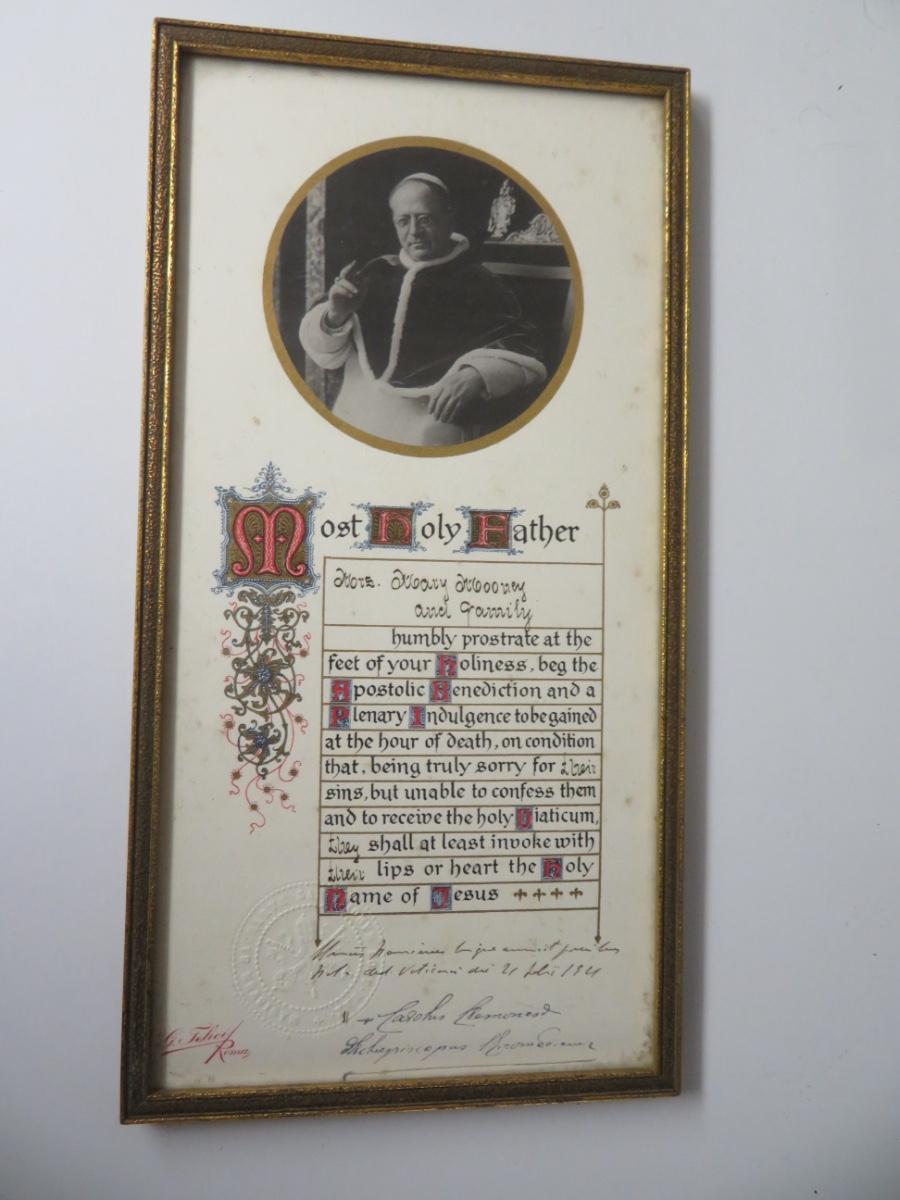 Most Holy Father
Mrs. Mary Mooney
and Family
humbly prostrate at the
feet of your Holiness, beg the
Apostolic Benediction and a
Plenary Indulgence to be gained
at the hour of death, on condition
that, being truly sorry for their
sins, but unable to confess them
and to receive the holy Viaticum,
they shall at least invoke with
their lips or heart the Holy
Name of Jesus ++++
+ Carolus
Archiepiscopus
G. Felici
Roma